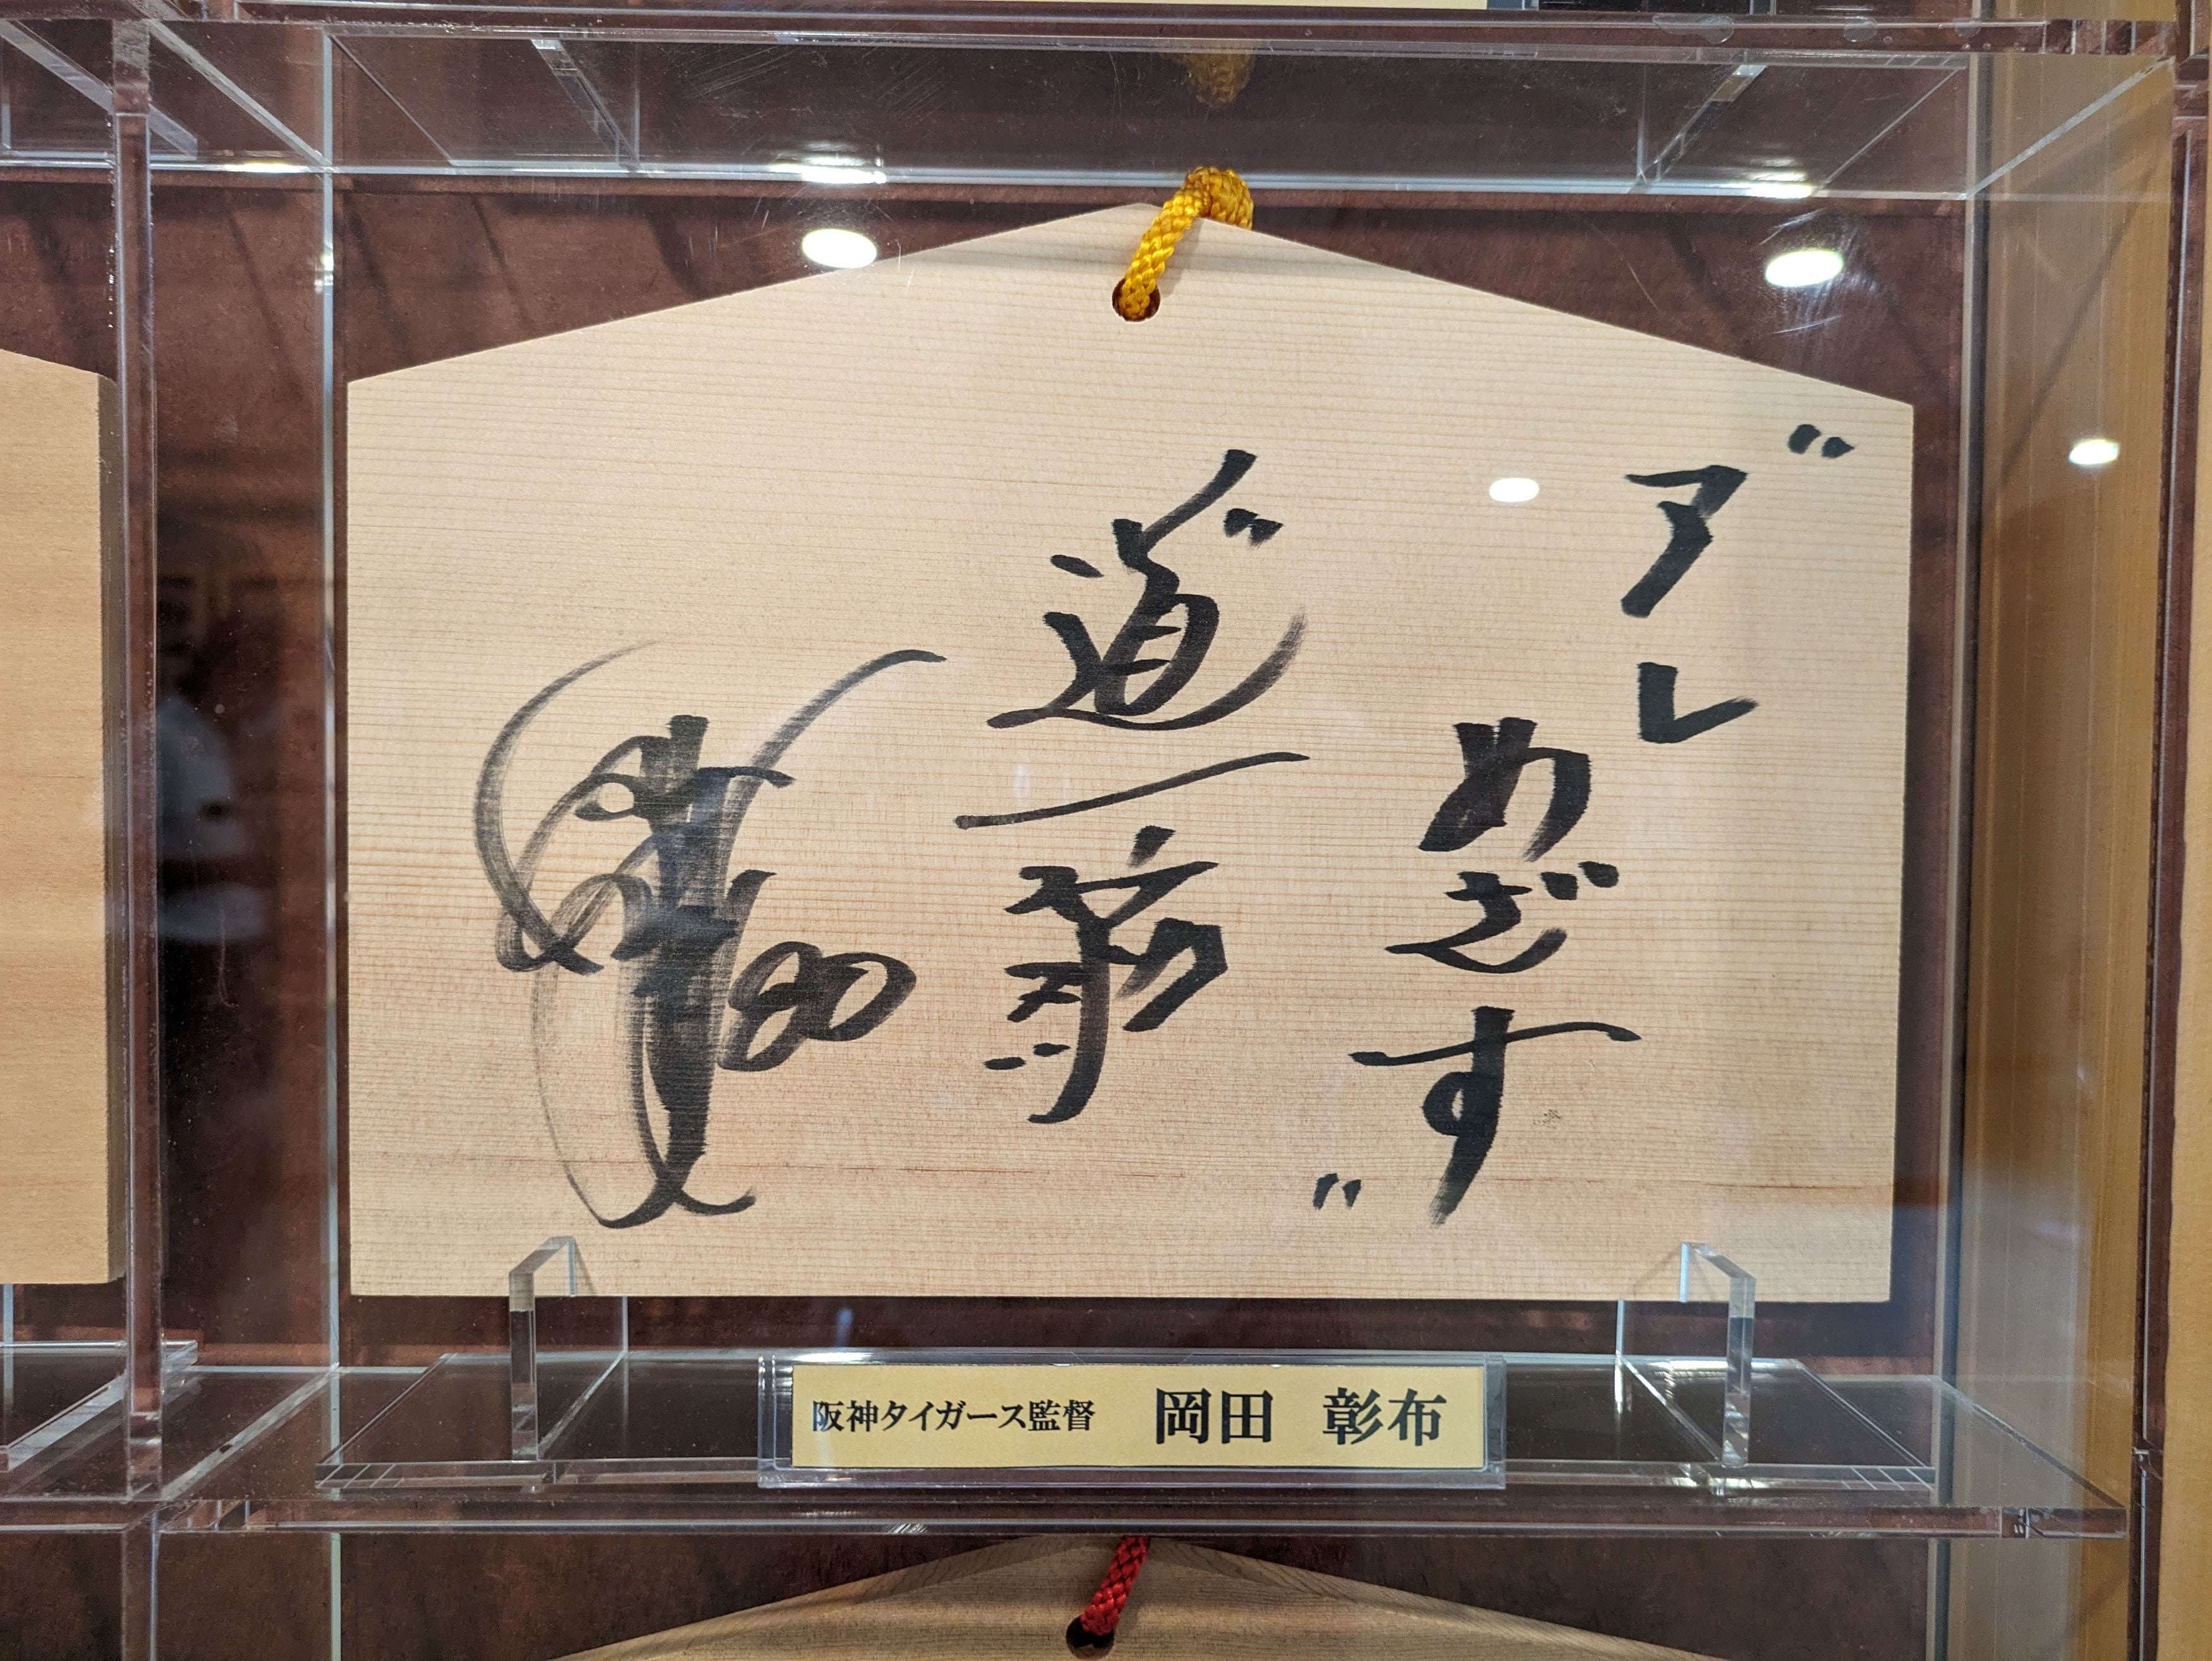 〝アレ
めざす〟
〝道一筋
80
阪神タイガース監督 岡田 彰布